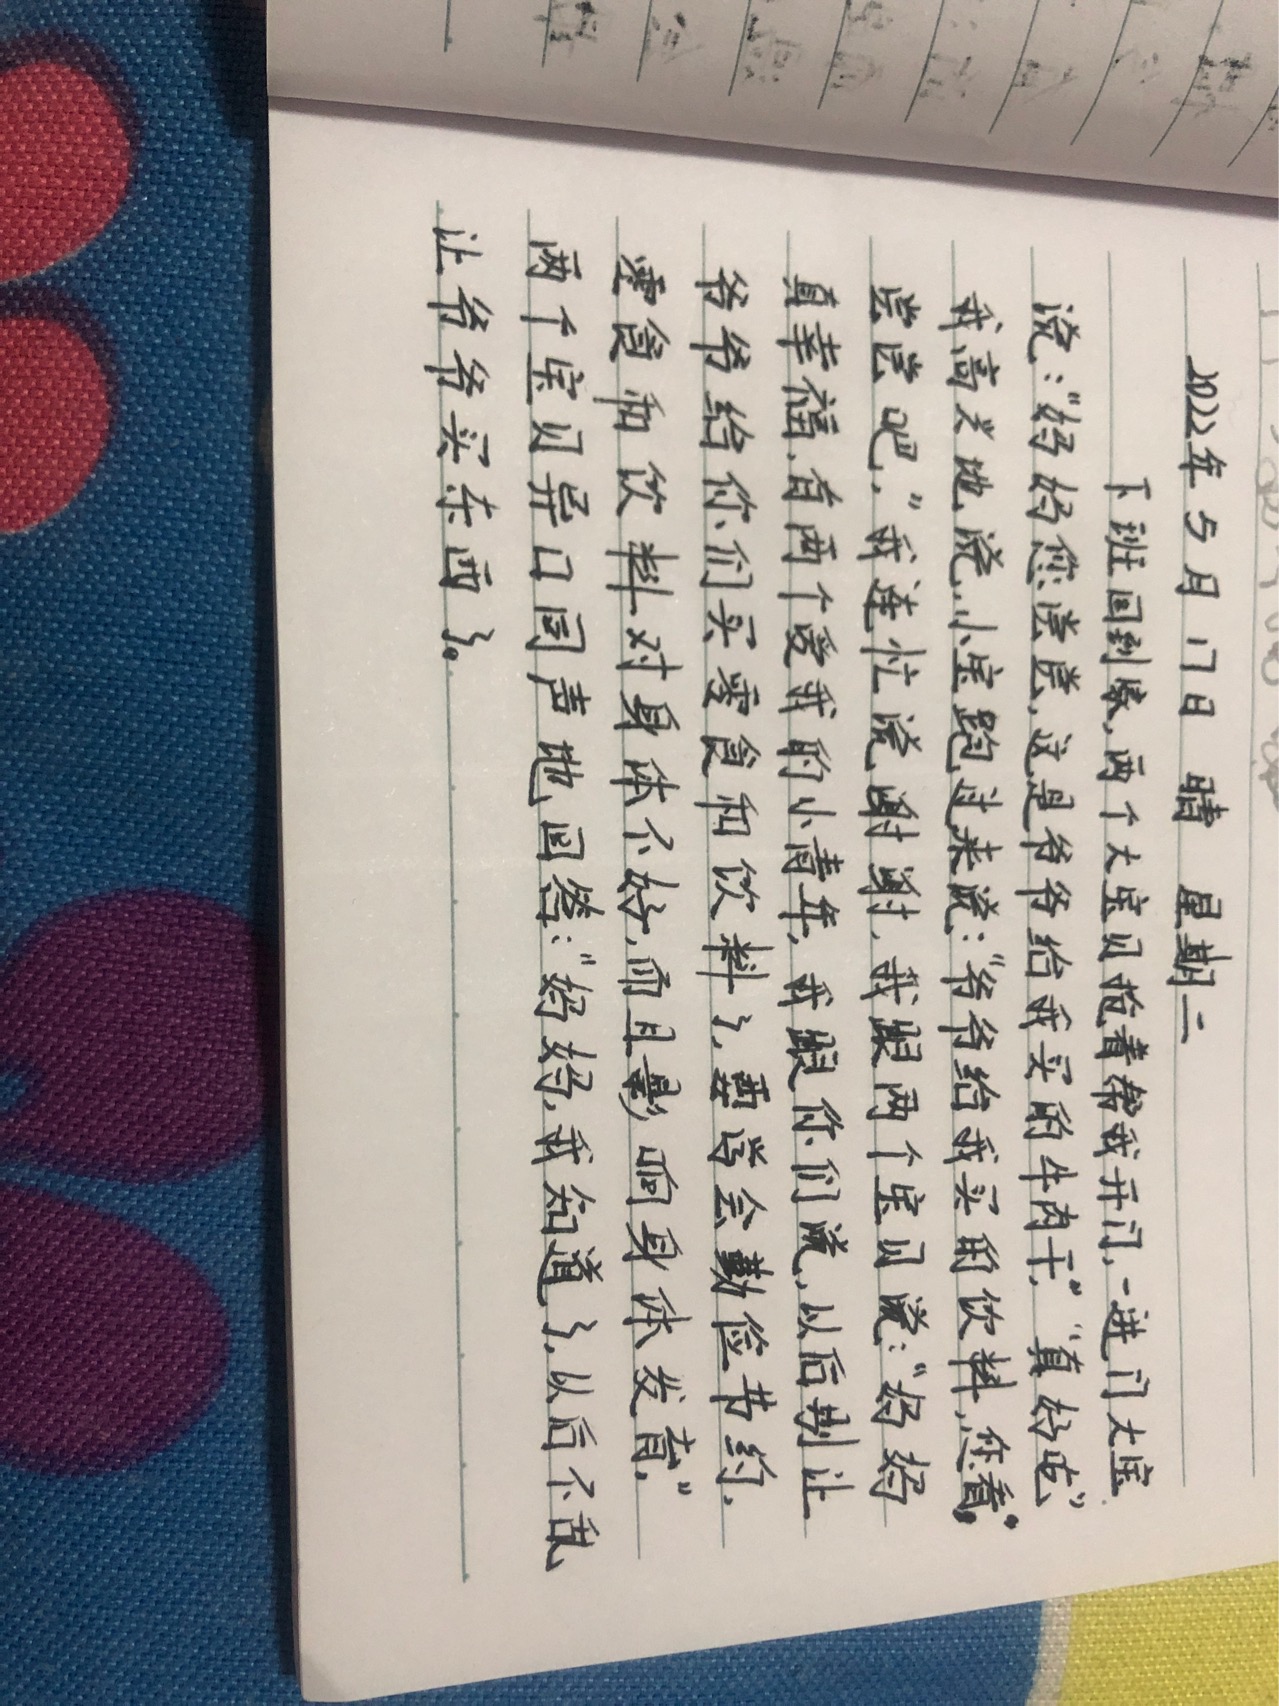 2022年5月17日 晴 星期二
下班回到家,两个大宝贝抢着帮我开门,一进门大宝
说:"妈妈您尝尝,这是爷爷给我买的牛肉干,""真好吃"
我高兴地说,小宝跑过来说:"爷爷给我买的饮料,您看,"
尝尝吧,"我连忙说谢谢,我跟两个宝贝说:"妈妈
真幸福,有两个爱我的小青年,我跟你们说,以后别让
爷爷给你们买零食和饮料了,要学会勤俭节约,
零食和饮料对身体不好,而且影响身体发育,"
两个宝贝异口同声地回答:"妈妈,我知道了,以后不乱
让爷爷买东西了。